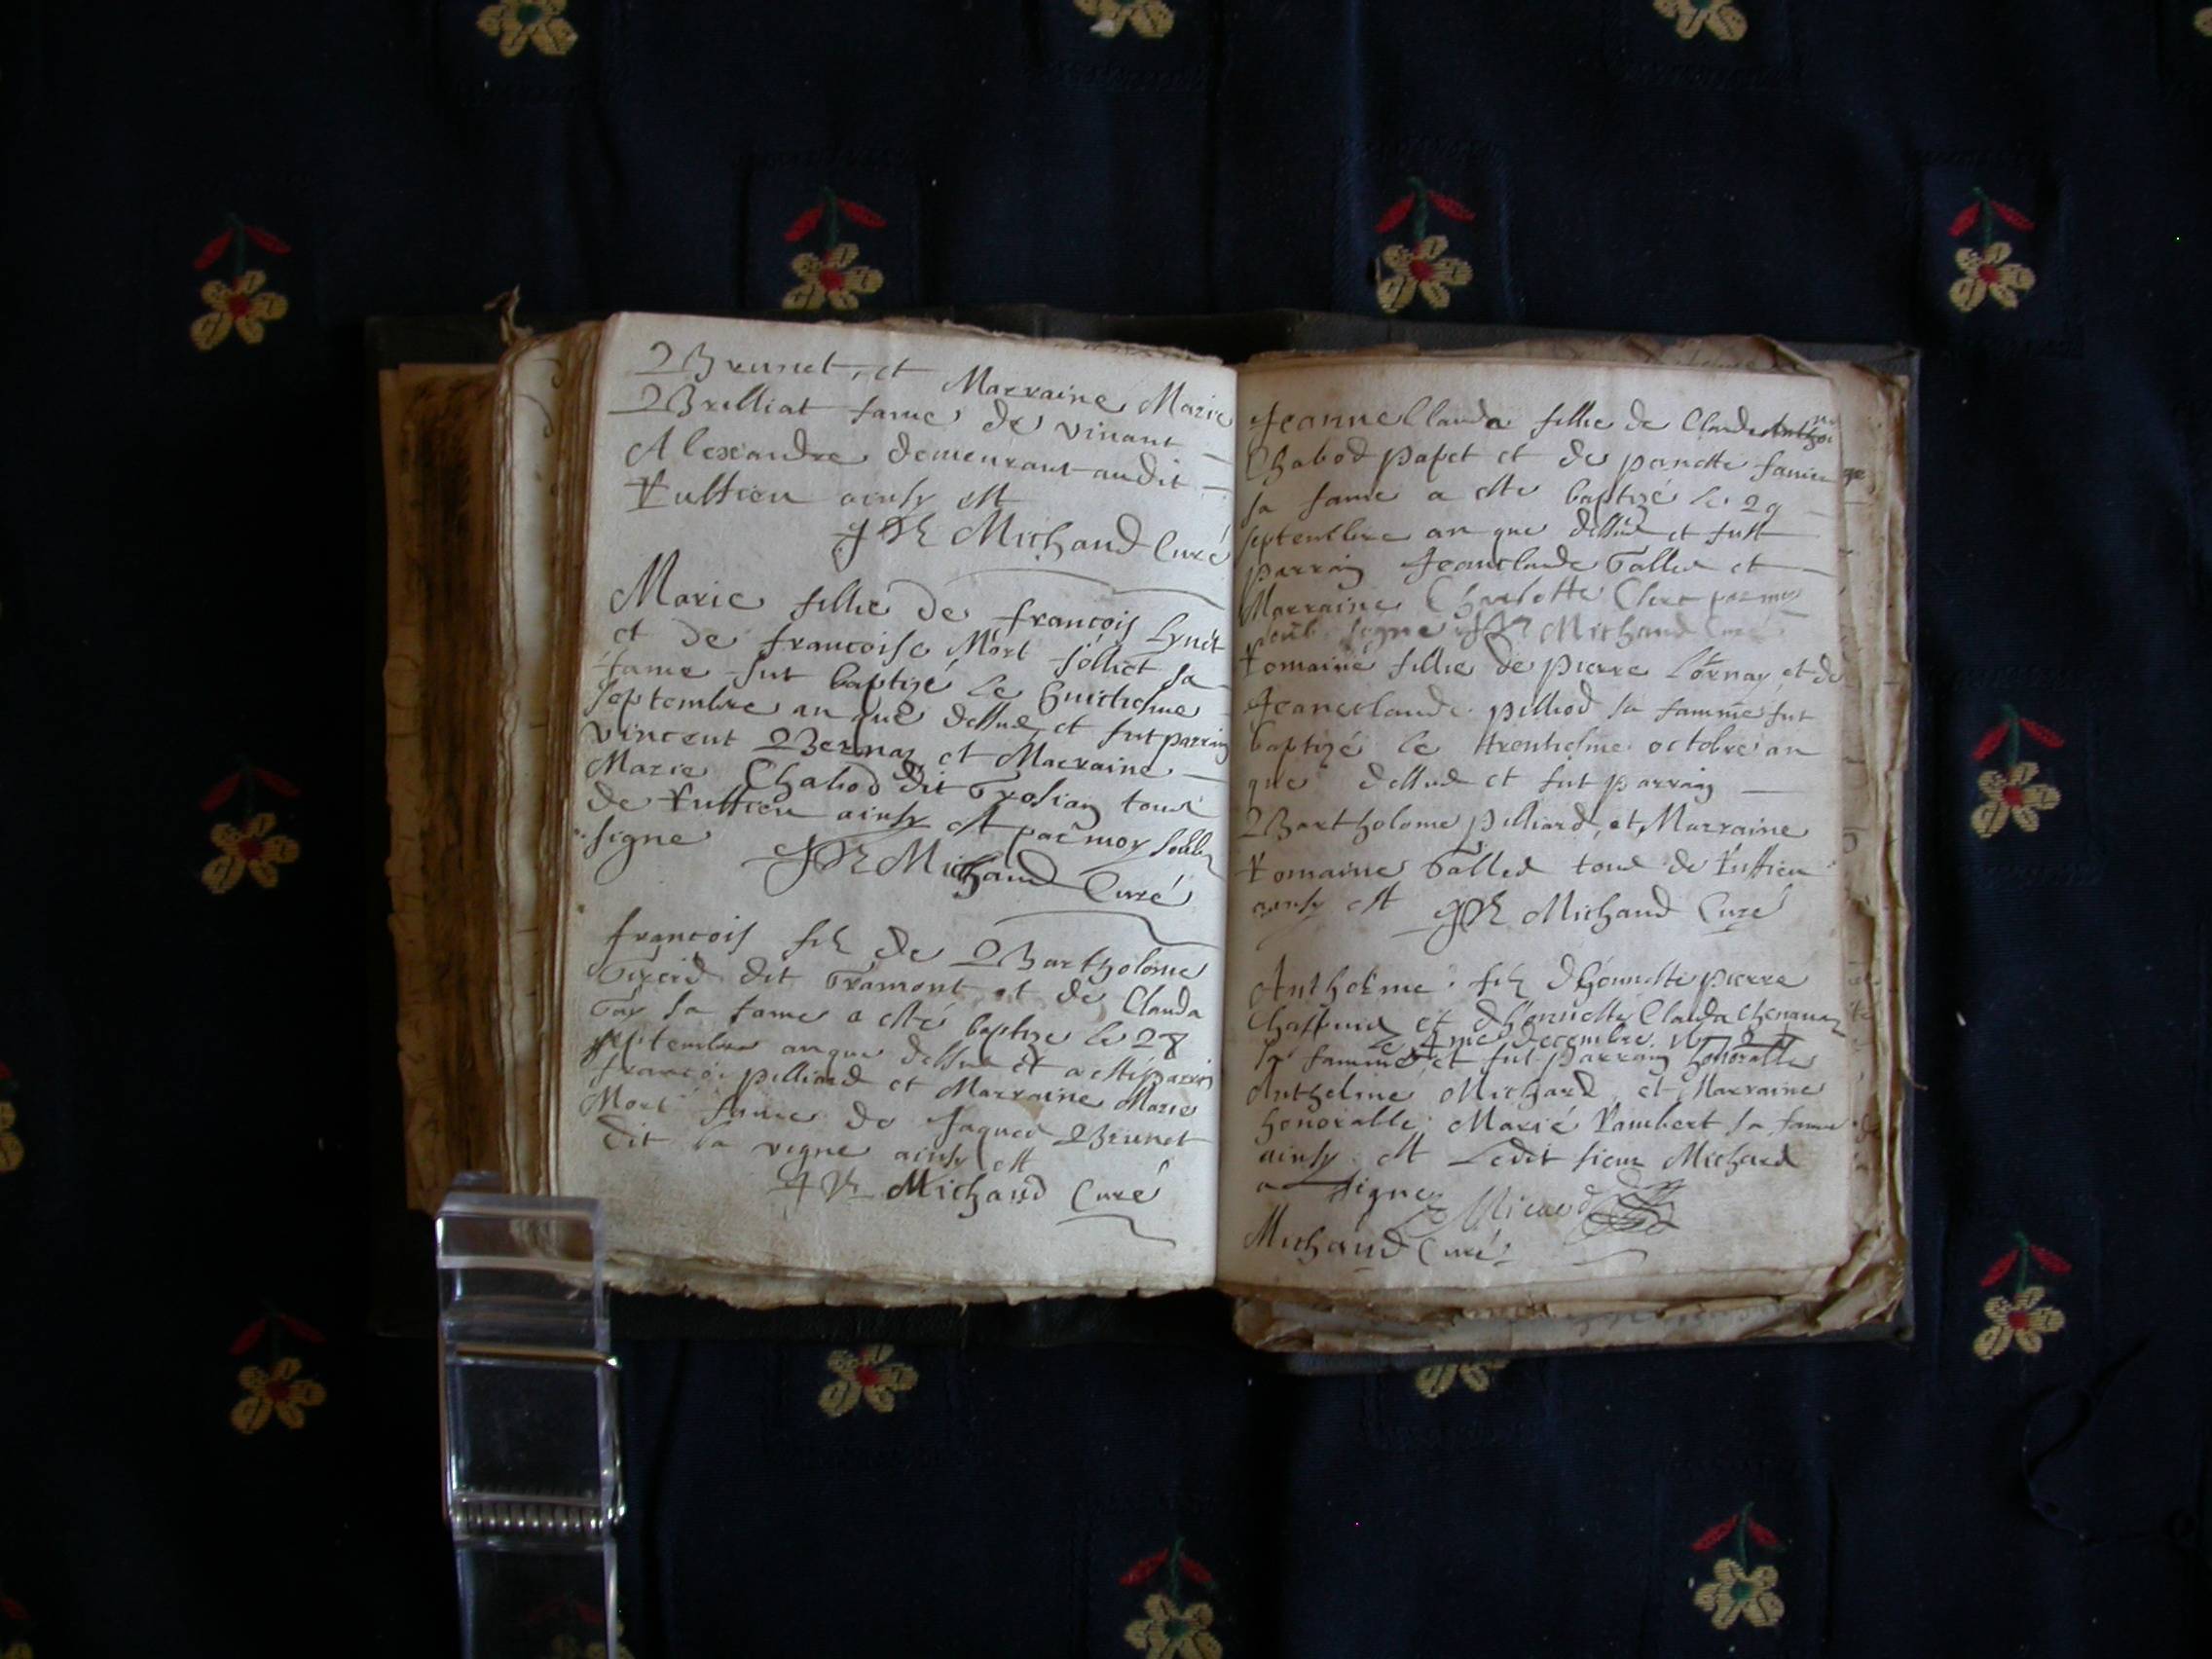 Brunet, et Marraine Marie
Brilliat fame de vinant
Alexandre demeurant audit
Ruffieu ainsy est
Michaud Curé
Marie fillie de françois Lynet
et de francoise Mort jolliet sa
fame fut baptizé le huictiesme
septembre an que dessus, et fut parrain
vincent Bernaz et Marraine
Marie Chabod dit Grosian tous
de Ruffieu ainsy est par moy soub
signe
Michaud Curé
francois filz de Bartholome
dit Gramont et de Clauda
Gay sa fame a esté baptize le 28
septembre an que dessus et a esté parrin
francoi pilliard et Marraine Marie
Mort fame de Jaques Brunet
dit la vigne ainsy est
Michaud Curé
Jeanne Clauda fillie de Claude
Chabod papet et de pernette
sa fame a esté baptizé le 29
septembre an que dessus et fust
parrain Jeanclaude Galled et
Marraine Charlotte Clerc par moy
soub signe Michaud Curé
Romaine fillie de pierre Cornay et de
Jeaneclaude pilliod sa famme fut
baptizé le trentiesme octobre an
que dessus et fut parrain
Bartholome pilliard, et Marraine
Romaine Galled tous de Ruffieu
ainsy est Michaud Curé
Anthelme filz dhonneste pierre
Chappuis et dhonneste Clauda
le 4me decembre
sa famme et fut parrain honorable
Anthelme Michard et Marraine
honorable Marie Rambert sa fame
ainsy est Ledit sieur Michard
a signe
Michaud Curé